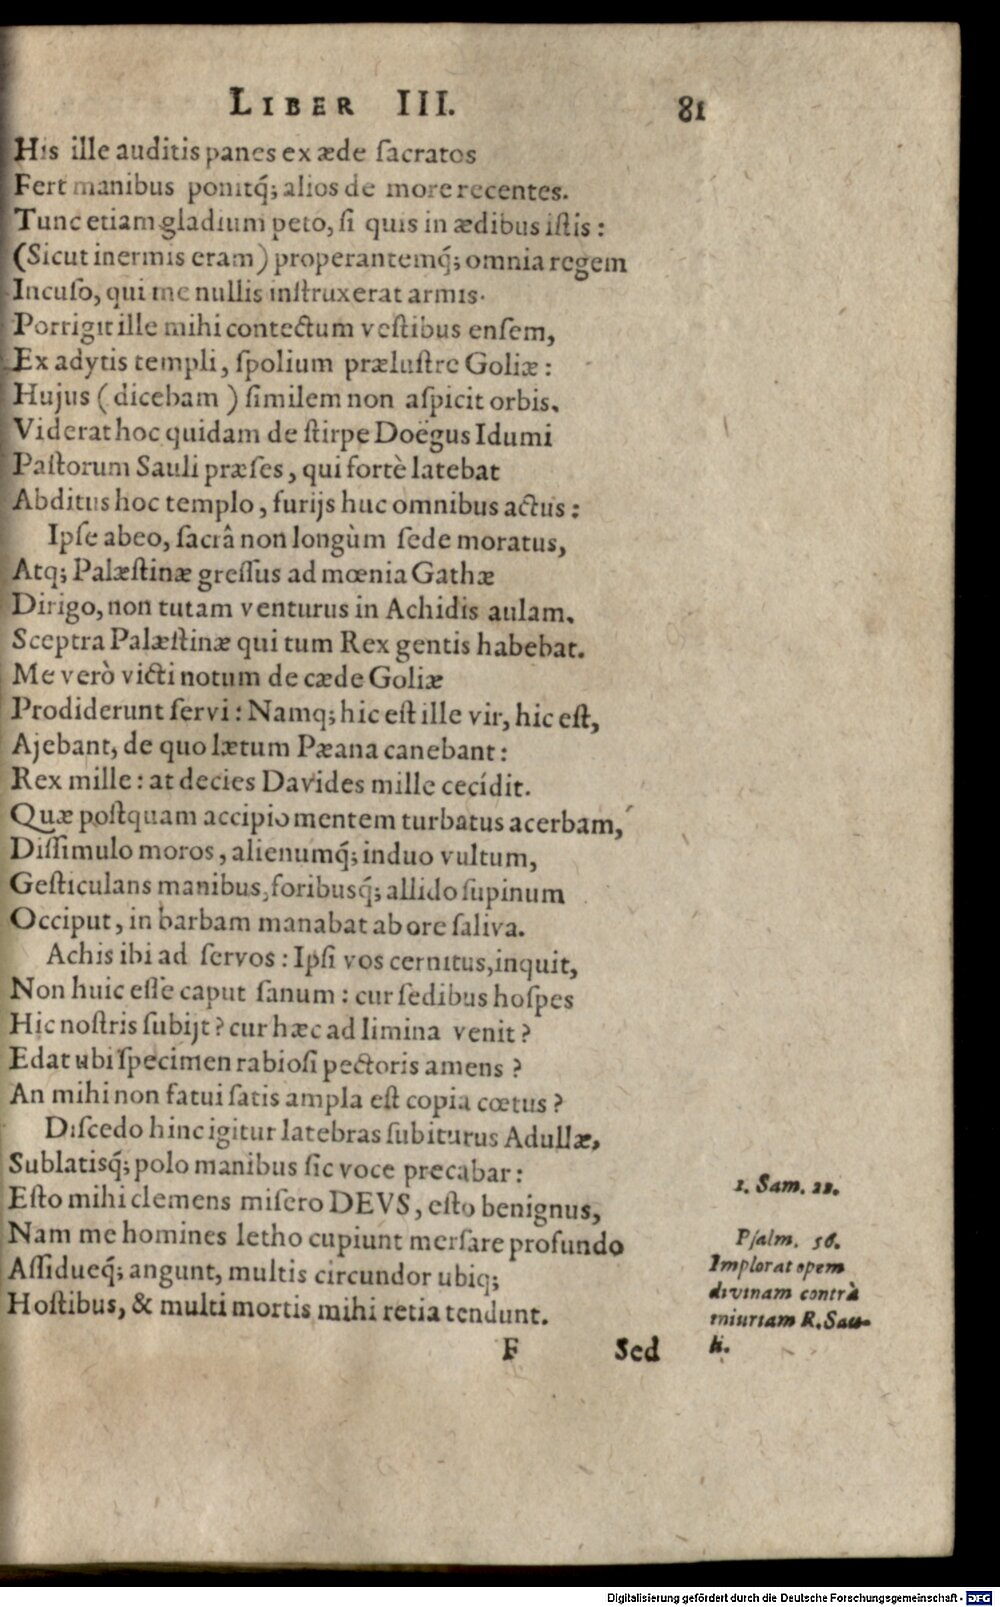 LIBER III. 81
His ille auditis panes ex æde ſacratos
Fert manibus ponitq́; alios de more recentes.
Tunc etiam gladium peto, ſi quis in ædibus iſtis:
(Sicut inermis eram) properantemq́; omnia regem
Incuſo, qui me nullis inſtruxerat armis.
Porrigit ille mihi contectum veſtibus enſem,
Ex adytis templi, ſpolium præluſtre Goliæ:
Hujus (dicebam) ſimilem non aſpicit orbis.
Viderat hoc quidam de ſtirpe Doëgus Idumi
Paſtorum Sauli præſes, qui fortè latebat
Abditus hoc templo, furijs huc omnibus actus:
Ipſe abeo, ſacrâ non longùm ſede moratus,
Atq; Palæſtinæ greſſus ad mœnia Gathæ
Dirigo, non tutam venturus in Achidis aulam.
Sceptra Palæſtinæ qui tum Rex gentis habebat.
Me verò victi notum de cæde Goliæ
Prodiderunt ſervi: Namq; hic eſt ille vir, hic eſt,
Ajebant, de quo lætum Pæana canebant:
Rex mille: at decies Davides mille cecídit.
Quæ poſtquam accipio mentem turbatus acerbam,
Diſſimulo moros, alienumq́; induo vultum,
Geſticulans manibus, foribusq́; allido ſupinum
Occiput, in barbam manabat ab ore ſaliva.
Achis ibi ad ſervos: Ipſi vos cernitus, inquit,
Non huic eſſe caput ſanum: cur ſedibus hoſpes
Hic noſtris ſubijt? cur hæc ad limina venit?
Edat ubi ſpecimen rabioſi pectoris amens?
An mihi non fatui ſatis ampla eſt copia cœtus?
Diſcedo hinc igitur latebras ſubiturus Adullæ,
Sublatisq́; polo manibus ſic voce precabar:
Eſto mihi clemens miſero DEVS, eſto benignus,
Nam me homines letho cupiunt merſare profundo
Aſſidueq́; angunt, multis circundor ubiq;
Hoſtibus, & multi mortis mihi retia tendunt.
F Sed
1. Sam. 22.
Pſalm. 56.
Implorat opem
divinam contrà
iniuriam R. Sau-
li.
Digitalisierung gefördert durch die Deutsche Forschungsgemeinschaft - DFG